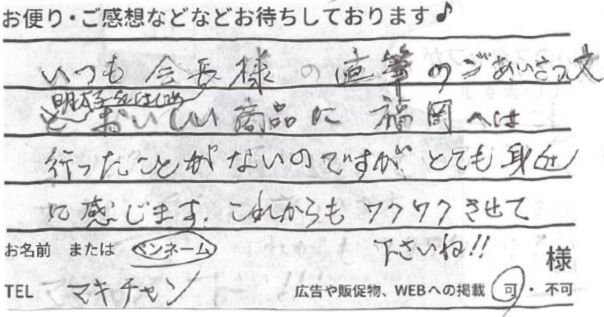 お便り・ご感想などなどお待ちしております♪
いつも会長様の直筆のごあいさつ文
明太子をはじめ
とおいしい商品に福岡へは
行ったことがないのですが とても身近
に感じます。これからもワクワクさせて
下さいね!!
お名前 または ペンネーム 様
TEL マキチャン 広告や販促物、WEBへの掲載 可・不可